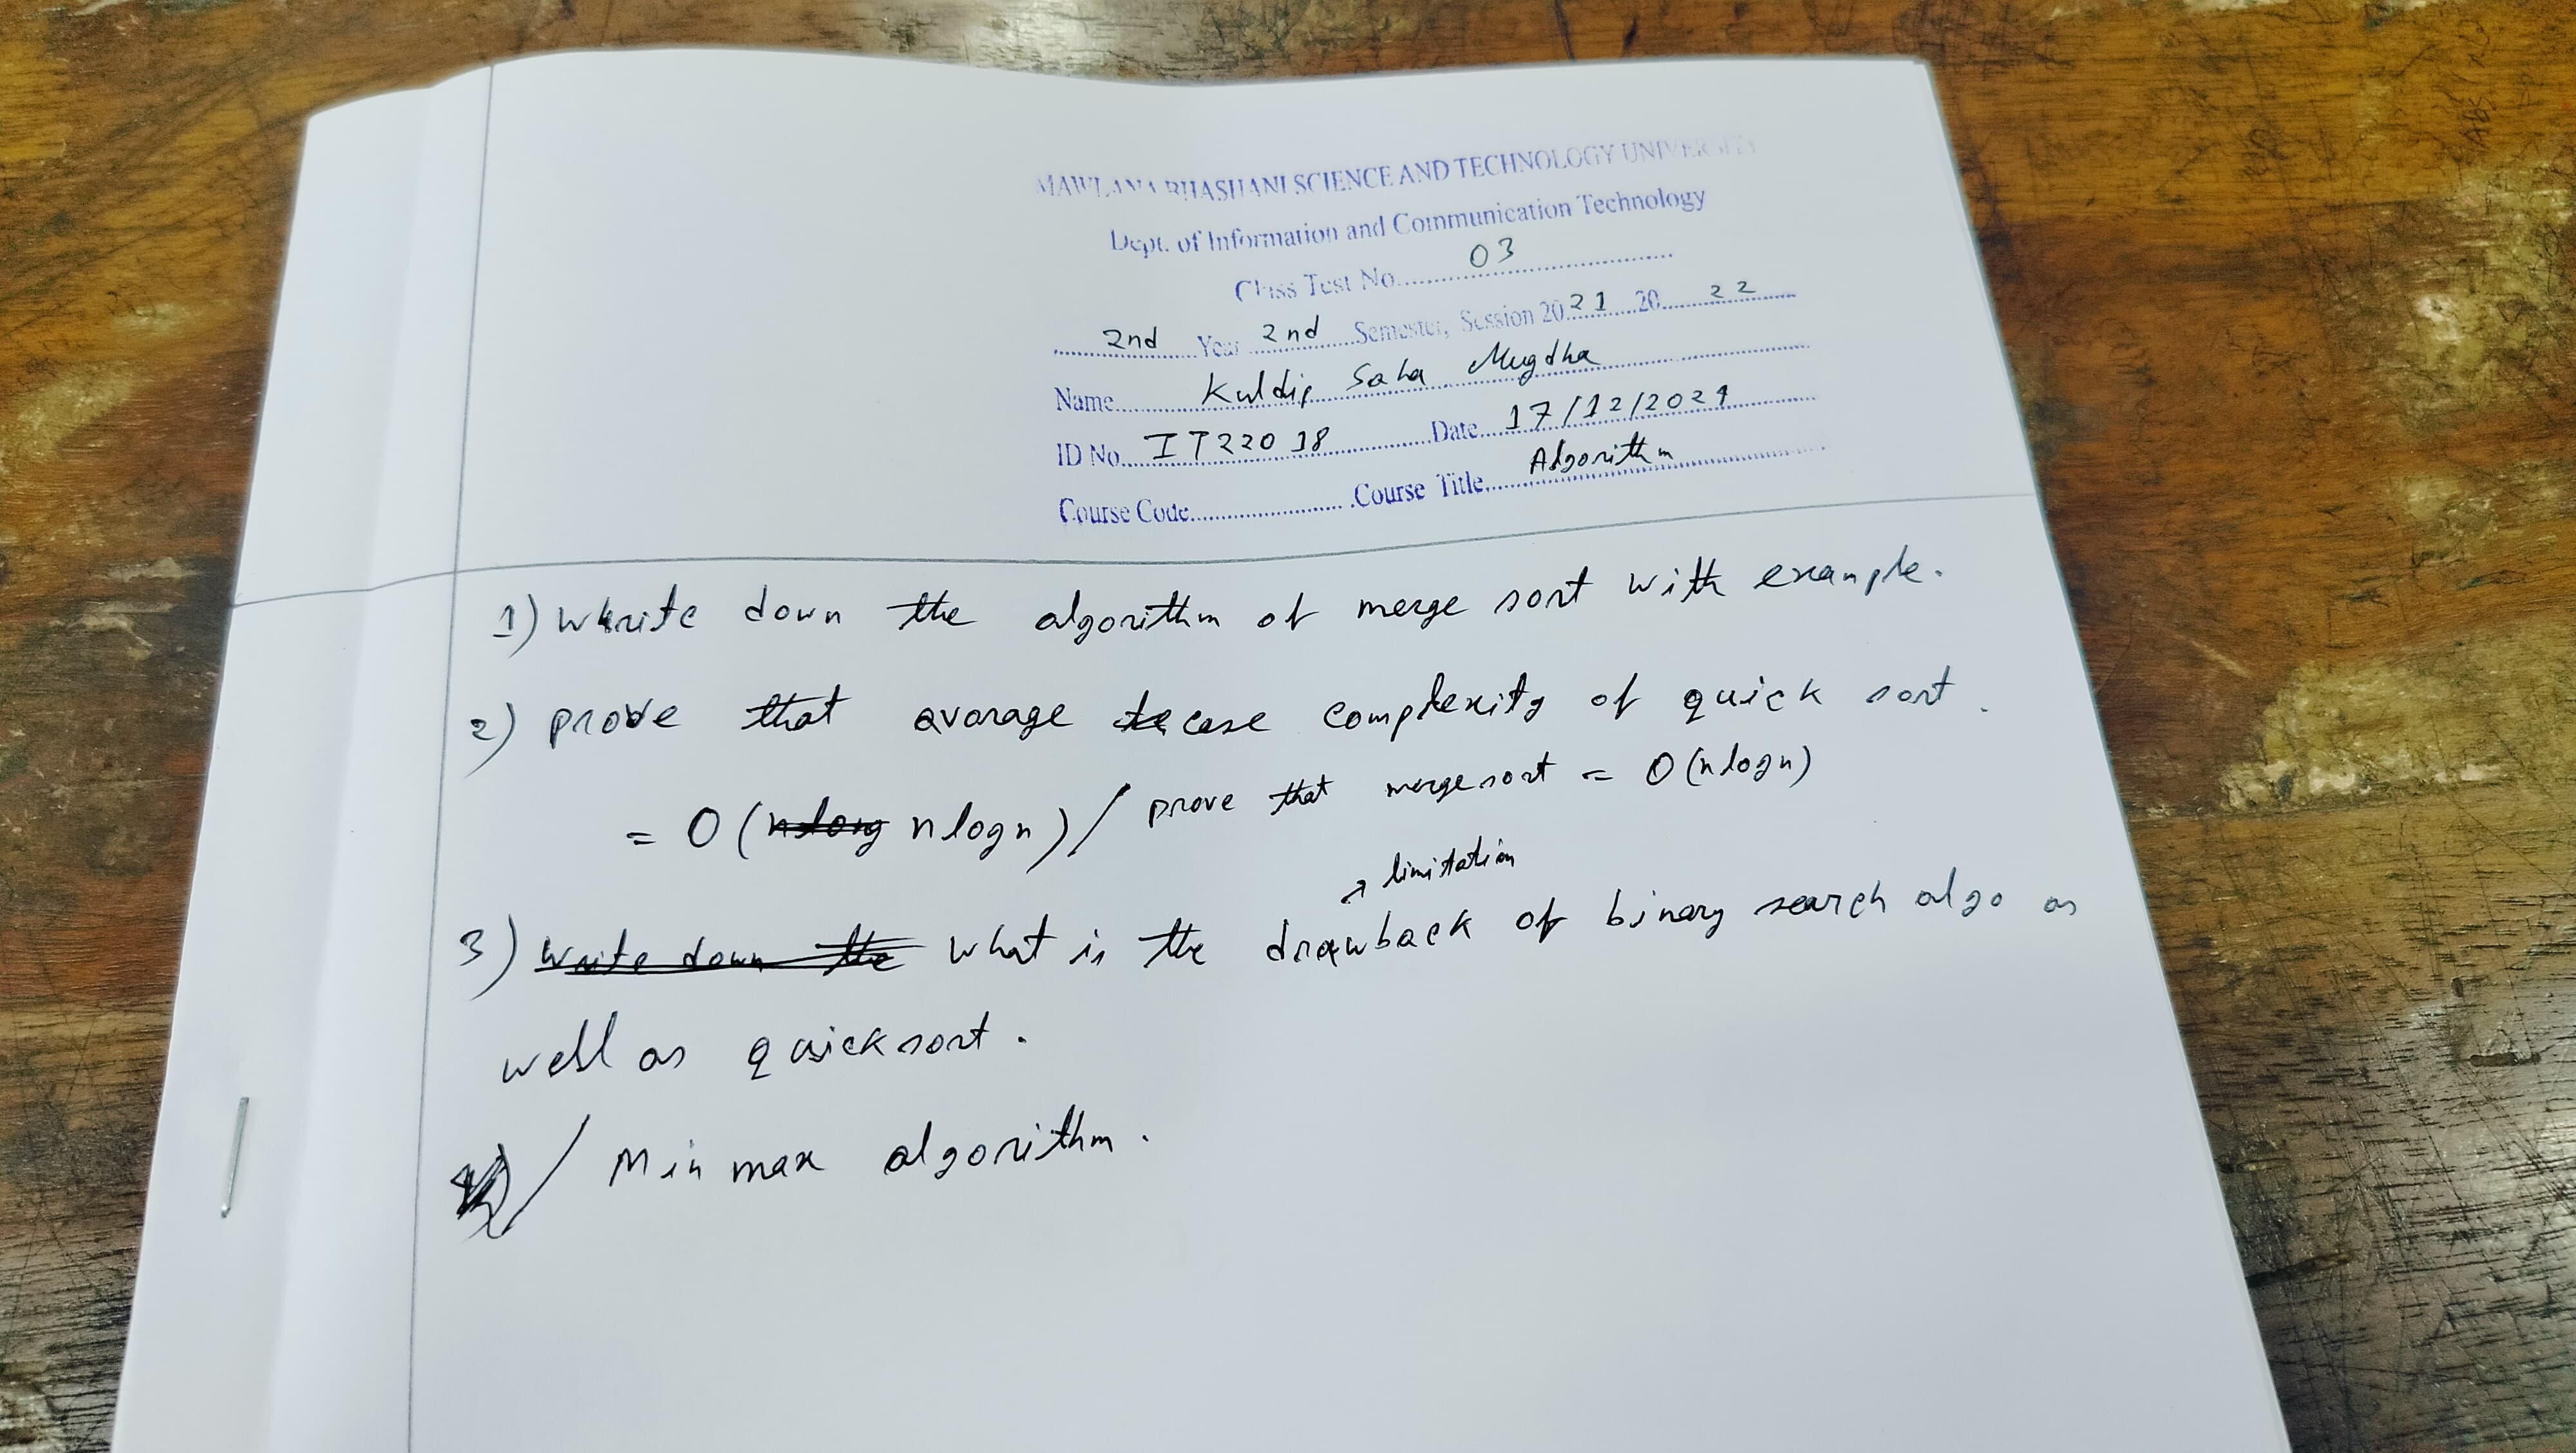 MAWLANA BHASHANI SCIENCE AND TECHNOLOGY UNIVERSITY
Dept. of Information and Communication Technology
Class Test No. 03
2nd Year 2nd Semester, Session 2021 2022
Name Kuldip Saha Mugdha
ID No. IT22018 Date 17/12/2024
Course Code Course Title Algorithm
1) Write down the algorithm of merge sort with example.
2) prove that avarage case complexity of quick sort.
= O(nlogn) / prove that mergesort = O(nlogn)
→ limitation
3) Write down the What is the drawback of binary search algo as
well as quicksort.
/ Min max algorithm.